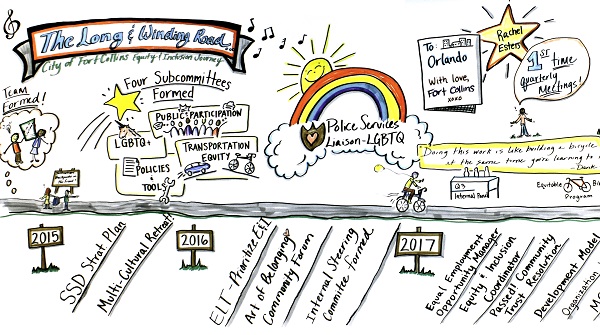 The Long & Winding Road...
City of Fort Collins Equity & Inclusion Journey
TEAM
FORMED!
Four Subcommittees
Formed
PUBLIC PARTICIPATION
LGBTQ+
POLICIES
+
TOOLS
TRANSPORTATION
EQUITY
Police Services
Liaison-LGBTQ
To:
Orlando
With love,
Fort Collins
xoxo
Rachel
Esters
1ST time
quarterly
Meetings!
Doing this work is like building a bicycle
at the same time you're learning to
Q3
Internal
Equitable
Program
2015
SSD Strat Plan
Multi-Cultural Retreat
2016
ELT-Prioritize E&I
Art of Belonging
Community Forum
Internal Steering
Committee formed
2017
Equal Employment
Opportunity Manager
Equity & Inclusion
Coordinator
Passed! Community
Trust Resolution
Development Model